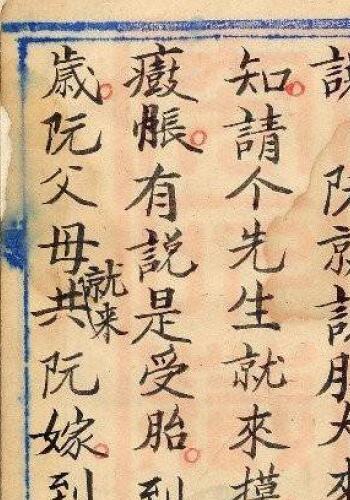 阮就
知請个先生就來摸
脹有說是受胎到
歲阮父母共阮嫁到
就来